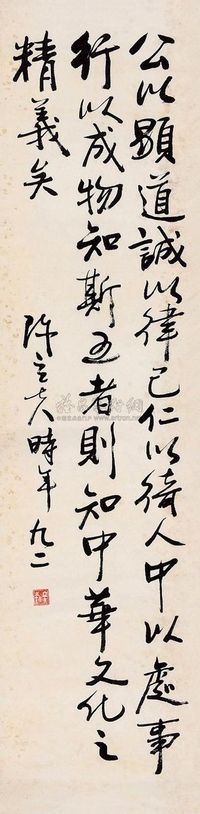 公以顯道誠以律己仁以待人中以處事
行以成物知斯五者則知中華文化之
精義矣
陳立夫時年九二